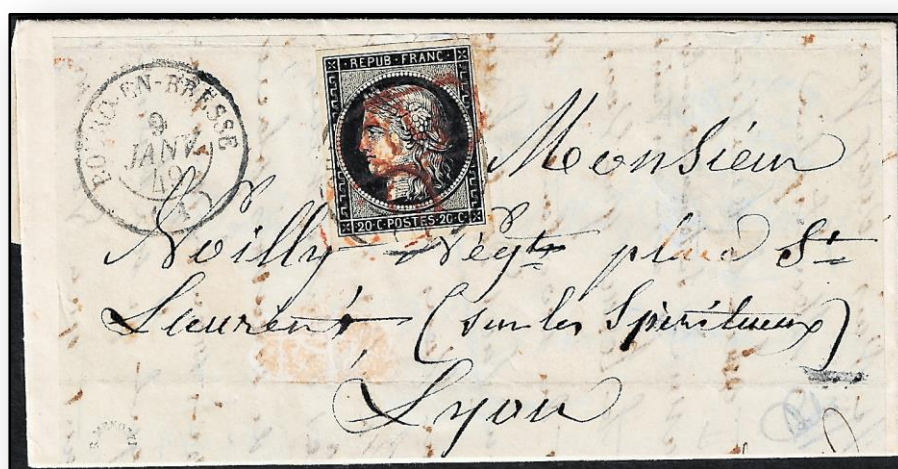 BOURG-EN-BRESSE
9
JANV.
49
(1)
REPUB·FRANC·
20·C·POSTES·20·C·
Monsieur
Noilly Négte place St
Laurent (sur les Spiritueux)
Lyon